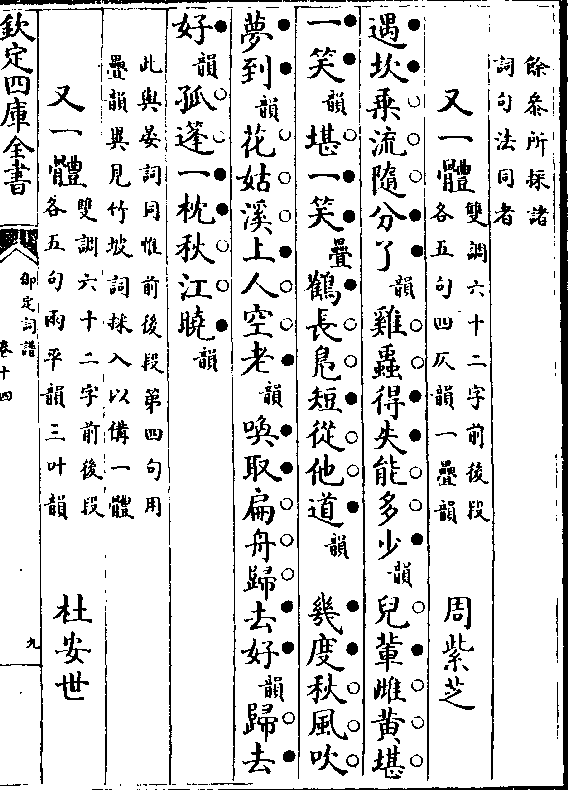 餘叅所採諸
詞句法同者
又一體 雙調六十二字前後段
各五句四仄韻一疊韻 周紫芝
遇坎乘流隨分了韻雞蟲得失能多少韻兒輩雌黄堪
一笑韻堪一笑疊鶴長鳧短從他道韻 幾度秋風吹
夢到韻花姑溪上人空老韻喚取扁舟歸去好韻歸去
好韻孤蓬一枕秋江曉韻
此與晏詞同惟前後段第四句用
疊韻異見竹坡詞採入以備一體
又一體 雙調六十二字前後段
各五句兩平韻三叶韻 杜安世
欽定四庫全書
御定詞譜
卷十四
九